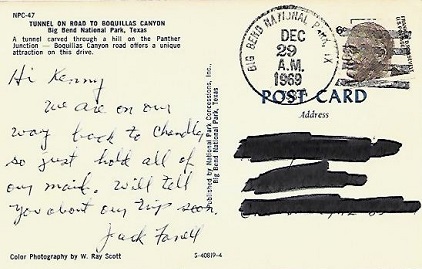 NPC-47
TUNNEL ON ROAD TO BOQUILLAS CANYON
Big Bend National Park, Texas
A tunnel carved through a hill on the Panther
Junction — Boquillas Canyon road offers a unique
attraction on this drive.
Hi Kenny
We are on our
way back to Chandler,
so just hold all of
our mail. Will tell
you about our trip soon.
Jack
Color Photography by W. Ray Scott
S-40819-4
Published by National Park Concessions, Inc.
Big Bend National Park, Texas
BIG BEND NATIONAL PARK, TX
DEC
29
A.M.
1969
6c
POST CARD
Address